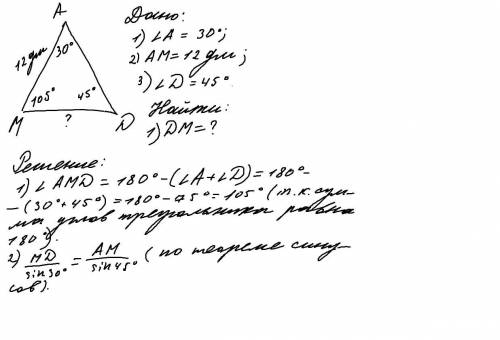 A
Дано:
1) ∠A = 30°;
2) AM = 12 дм;
3) ∠D = 45°
Найти:
1) DM = ?
12 дм
30°
105°
45°
M
?
D
Решение:
1) ∠AMD = 180° - (∠A + ∠D) = 180° -
- (30° + 45°) = 180° - 75° = 105° (т.к. сум-
ма углов треугольника равна
180°).
2) MD/sin30° = AM/sin45° (по теореме сину-
сов).